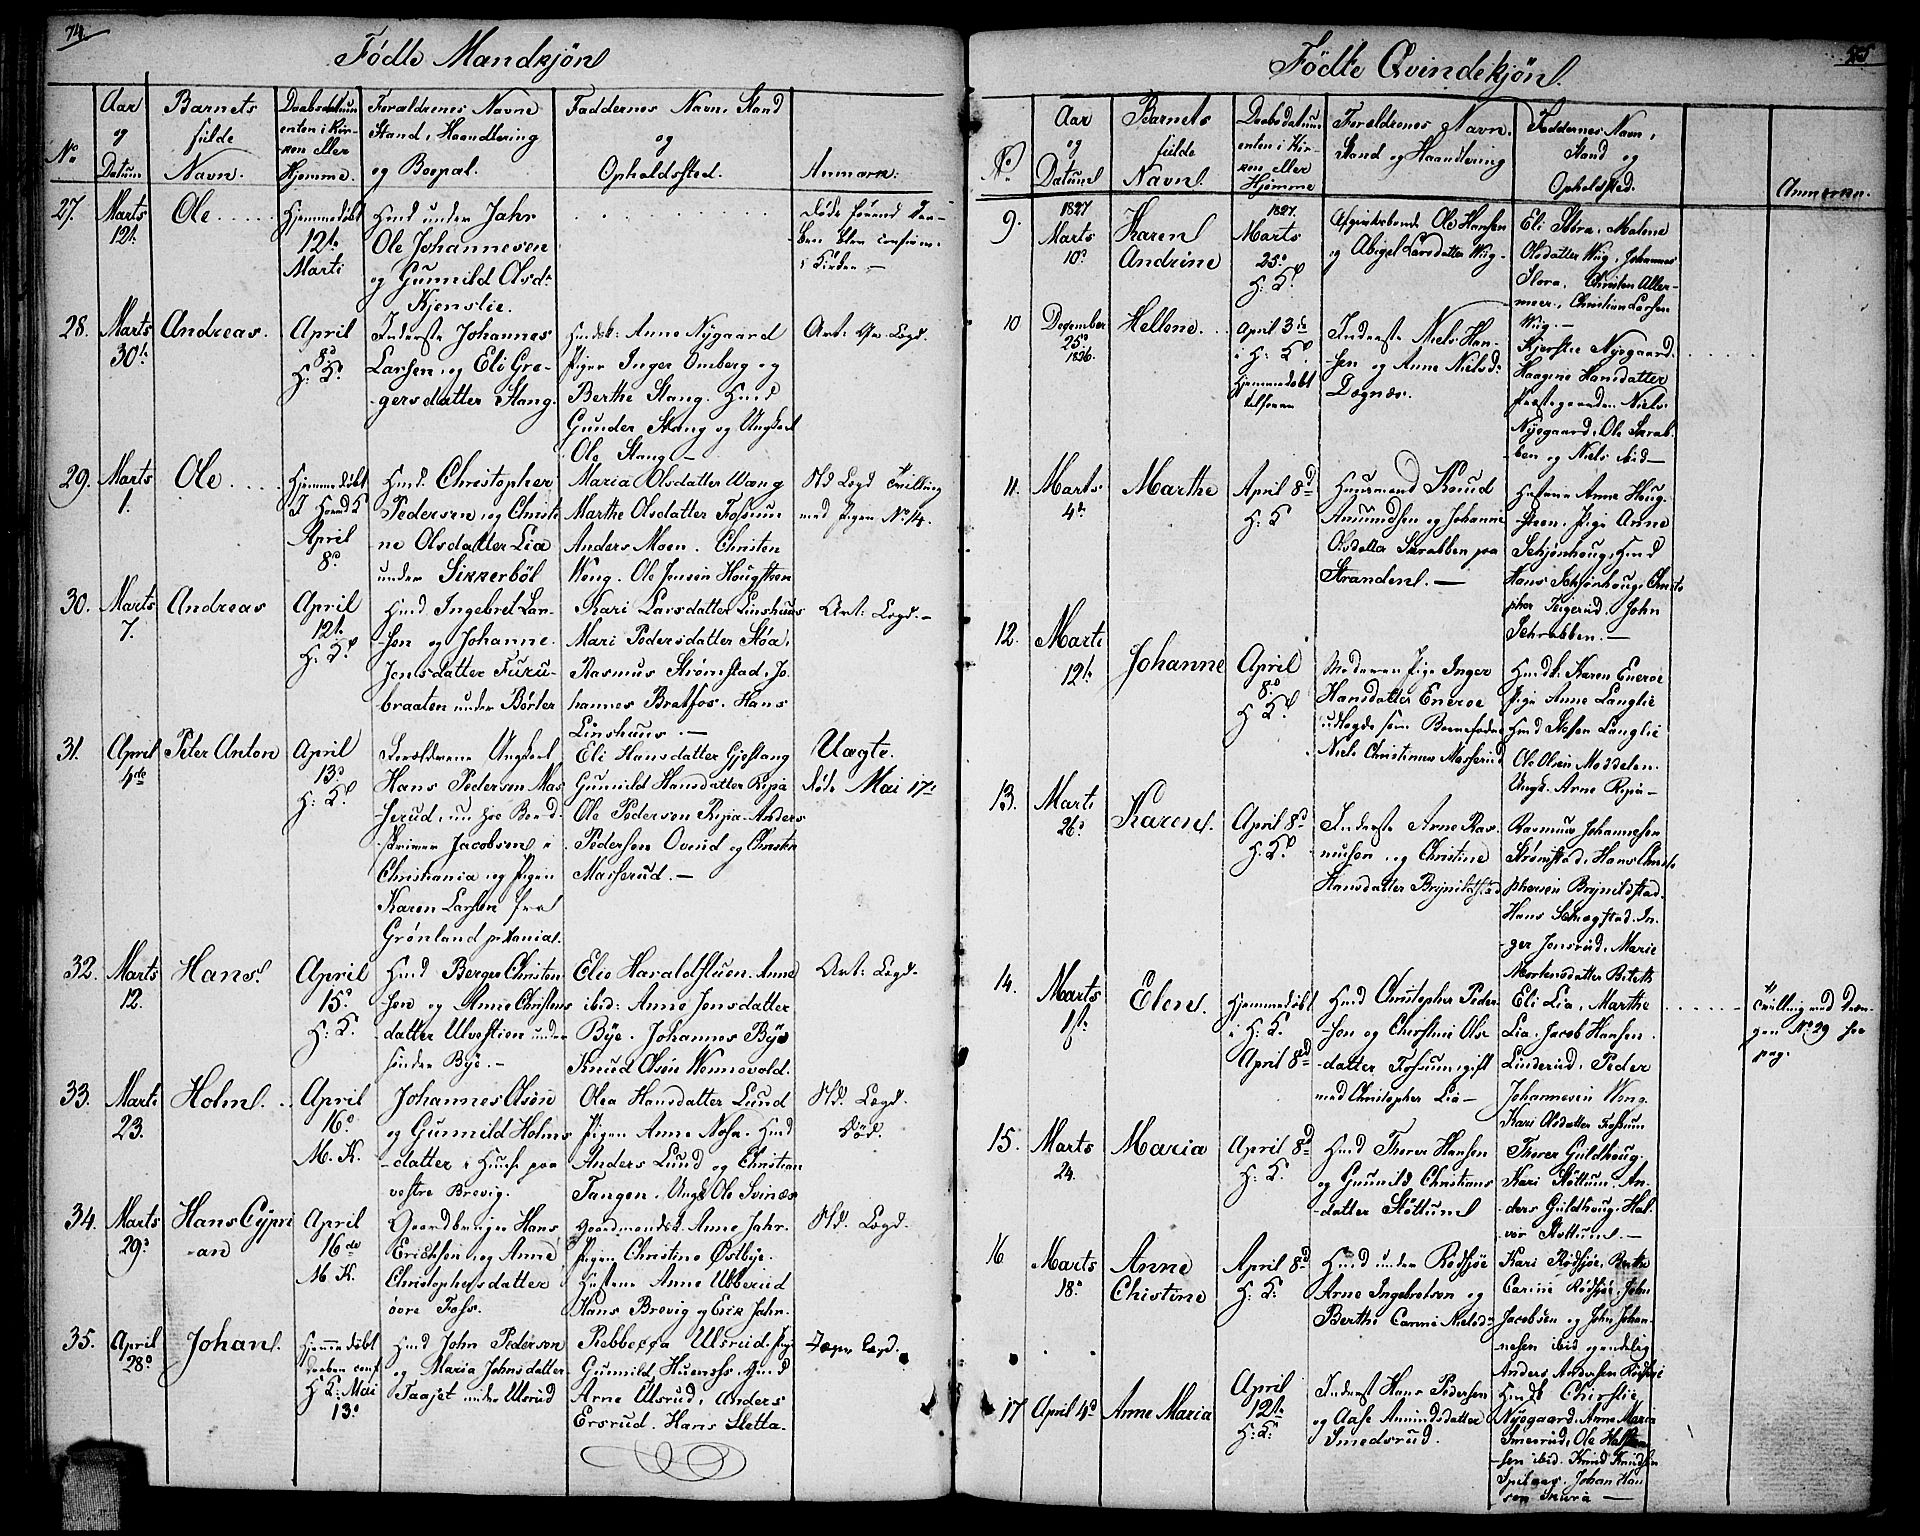 74
Fødte Mandkjøn
No
Aar
og
Datum
Barnets
fulde
Navn.
Daabsdatum
enten i Kir-
ken eller
Hjemme.
Forældrenes Navne
Stand, Haandtering
og Bopæl.
Faddernes Navn, Stand
og
Opholdsted.
Anmærk:
27.
Marts
12te
Ole
Hjemmedøbt
12te
Marti
Huusmd under Jahr
Ole Johannesen
og Gunnild Olsdr
Kjenslie.
Døde førend Daa-
ben blev confirm:
i Kirken —
28.
Marts
30te
Andreas.
April
8d
H: K:
Inderste Johannes
Larsen, og Eli Gre-
gersdatter Stang.
Anne Nygaard
Pigen Inger Omberg og
Berthe Stang. Huusmd
Gunder Stang og Ungkarl
Ole Stang —
29.
Marts
1.
Ole
Hjemmedøbt
April
8d
Huusmd: Christopher
Pedersen, og Christi-
ne Olsdatter Lia
under Sikkerböl
Maria Olsdatter Wæng
Marthe Olsdatter Fossum
Anders Moen. Christen
Weng. Ole Jensen Hougsteen
Tvilling
med Pigen No 14.
30.
Marts
7.
Andreas
April
12te
H: K:
Huusmd Ingebret Lar-
sen og Johanne
Jonsdatter Furu-
braaten under Börter
Kari Larsdatter Linshuus
Mari Pedersdatter Støa,
Rasmus Strømstad, Jo-
hannes Bratfos. Hans
Linshuus. —
31.
April
4de
Peter Anton
April
13d
H: K:
Forældrene Ungkarl
Hans Pedersen Mas-
serud, nu hos
Jacobsen i
Christiania og Pigen
Karen Larsen fra
Grønland
Eli Hansdatter Gjestang
Gunnild Hansdatter Ripa
Ole Pedersen Ripa. Anders
Pedersen Overud og Christen
Masserud. —
Uægte.
død Mai 17de
32.
Marts
12.
Hans
April
15d
H: K:
Huusmd Berger Christen-
sen og Anne Christens
datter Ulvestien under
Søndre Bye. —
Elie Haraldstuen. Anne
ibid: Anne Jonsdatter
Bye. Johannes Bye
Knud Olsen Wennevold.
33.
Marti
23.
Holm
April
16d
M. K.
Johannes Olsøn
og Gunnild Holms
datter i Huuse paa
vestre Brevig.
Olea Hansdatter Lund
Pigen Anne Huusmd
Anders Lund og Christian
Tangen. Ungk Ole Svinæs
Død.
34.
Marts
29d
Hans Cypri
an
April
16de
M. K.
Gaardbruger Hans
Erichsen og Anne
Christophersdatter
øvre Foss.
Anne Jahr.
Pigen Christine Østbye.
Anne Ubberud
Hans Brevig og Erik Jahr.
35.
April
28d
Johan
Hjemmedøbt
Daaben conf
H: K: Mai
13d
Huusmd John Pedersen
og Maria Johnsdatter
Taaget under Ulsrud
Rebbecca Ulsrud. Pige
Gunnild
Arne Ulsrud, Anders
Ersrud. Hans Sletta.
75
Fødte Qvindekjøn
No
Aar
og
Datum
Barnets
fulde
Navn.
Daabsdatum
enten i Kir-
ken eller
Hjemme
Forældrenes Navn.
Stand og Haandtering
Faddernes Navn,
Stand og
Opholdsted.
Anmærkn.
9.
1827
Marts
10d
Karen
Andrine
1827.
Marts
25d
H: K:
Ole Hansen
og Abigel Larsdatter Wiig
Eli Støra, Malene
Olsdatter Wiig, Johannes
Stora, Christen Aller-
meer, Christian Larsen
Wiig. —
10
December
25d
1826.
Hellene
April 3de
i H: K:
Hjemmedøbt
tilforen
Inderste Niels Han-
sen og Anne Nielsd:
Dognæs.
Kjerstie Nyegaard.
Haagine Hansdatter
Præstegaarden Niels
Nyegaard, Ole Skrab-
ben og Niels ibid —
11.
Marts
4de
Marthe
April 8d
H: K
Huusmand Knud
Amundsen og Johanne
Olsdatter Skrabben paa
Stranden. —
Anne Houg-
steen. Pige Anne
Schjønhoug, Huusmd
Hans Schjønhoug, Christo
pher Teigerud, John
Schrabben. —
12.
Marti
12te
Johanne
April
8d
H K:
Moderen Pige Inger
Hansdatter Eneroe
udlagde som Barnefader
Niels Christiansen Masserud
Karen Eneroe
Pige Anne Langlie
Huusmd Steffen Langlie
Ole Olsen Moddelen.
Ungk. Arne Ripa —
13.
Marti
26d
Karen
April 8d
H: K:
Inderste Arne Ras-
musen, og Christine
Hansdatter Brynildstad
Rasmus Johannesen
Strømstad, Hans Christo
phersen Brynildstad.
Hans Schiegstad. In-
ger Jonsrud, Marie
Mortensdatter
14.
Marts
1ste
Elen
Hjemmedøbt
i H: K:
April 8d
Huusmd Christopher Peder-
sen og Christine Ols-
datter Fossum, gift
med Christopher Lia —
Eli Lia, Marthe
Lia. Jacob Hansen
Linderud, Peder
Johannesen Wæng.
Kari Olsdatter Fossum
Tvilling med Dren-
gen No 29 for
pag.
15.
Marts
24.
Maria
April 8d
H: K:
Huusmd Thorer Hansen
og Gunnild Christians
datter Støttum
Thorer Guldhoug.
Kari Støttum. An-
ders Guldhoug. Hal-
vor Støttum. —
16
Marts
18d
Anne
Chistine
April 8d
H: K:
Huusmd under Rødsjøe
Arne Ingebretsen og
Berthe Carine Nielsd:
Kari Rødsjøe, Berthe
Carine Rødsjøe, John
Jacobsen og John Johan-
nesen ibid egentlig
Anders Andersen Rødsjøe
17
April 4d
Anne Maria
April
12te
H: K:
Inderst Hans Pedersen
og Aase Amundsdatter
Smedsrud.
Chirstie
Nyegaard, Anne Maria
Smedsrud, Ole Halsteen-
sen ibid. Knud Knudsen
Johan Han
sen